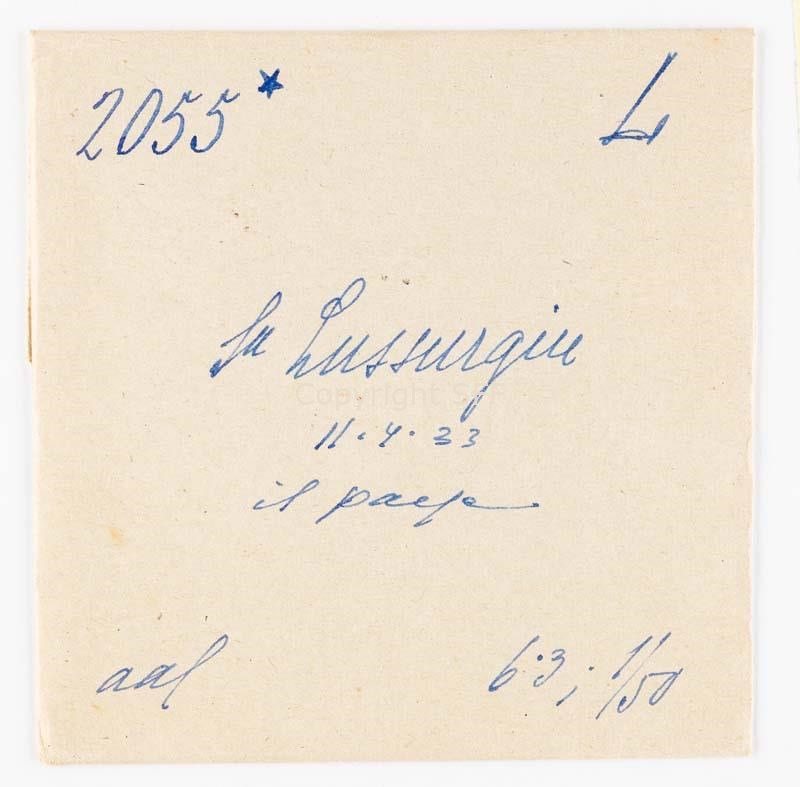 2055* L
Su Lussurgiu
11.4.33
il paese
aal 6.3; 1/50
Copyright